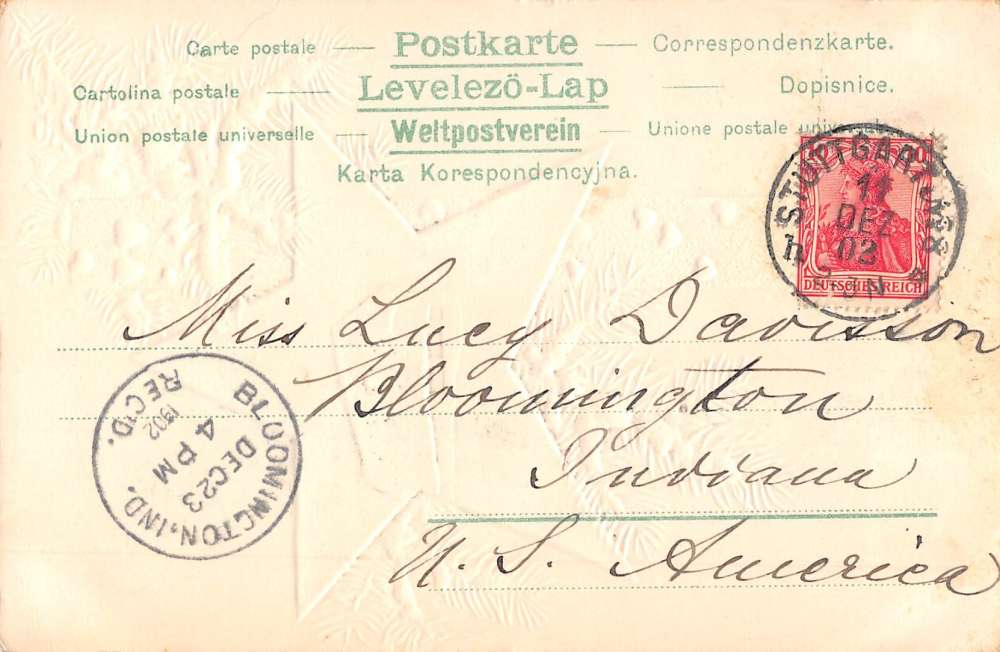 Carte postale — Postkarte — Correspondenzkarte.
Cartolina postale — Levelező-Lap — Dopisnice.
Union postale universelle — Weltpostverein — Unione postale
Karta Korespondencyjna.
STUTTGART
DEZ
02
DEUTSCHES REICH
Miss Lucy Davisson
Bloomington
Indiana
U. S. America
BLOOMINGTON, IND.
DEC 23
4 PM
1902
REC'D.